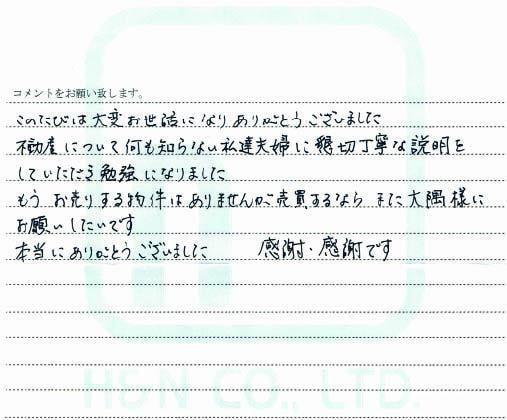 コメントをお願い致します。
このたびは大変お世話になりありがとうございました
不動産について何も知らない私達夫婦に懇切丁寧な説明を
していただき勉強になりました
もう お売りする物件はありませんが売買するなら また大隅様に
お願いしたいです
本当にありがとうございました 感謝・感謝です
H&N CO., LTD.